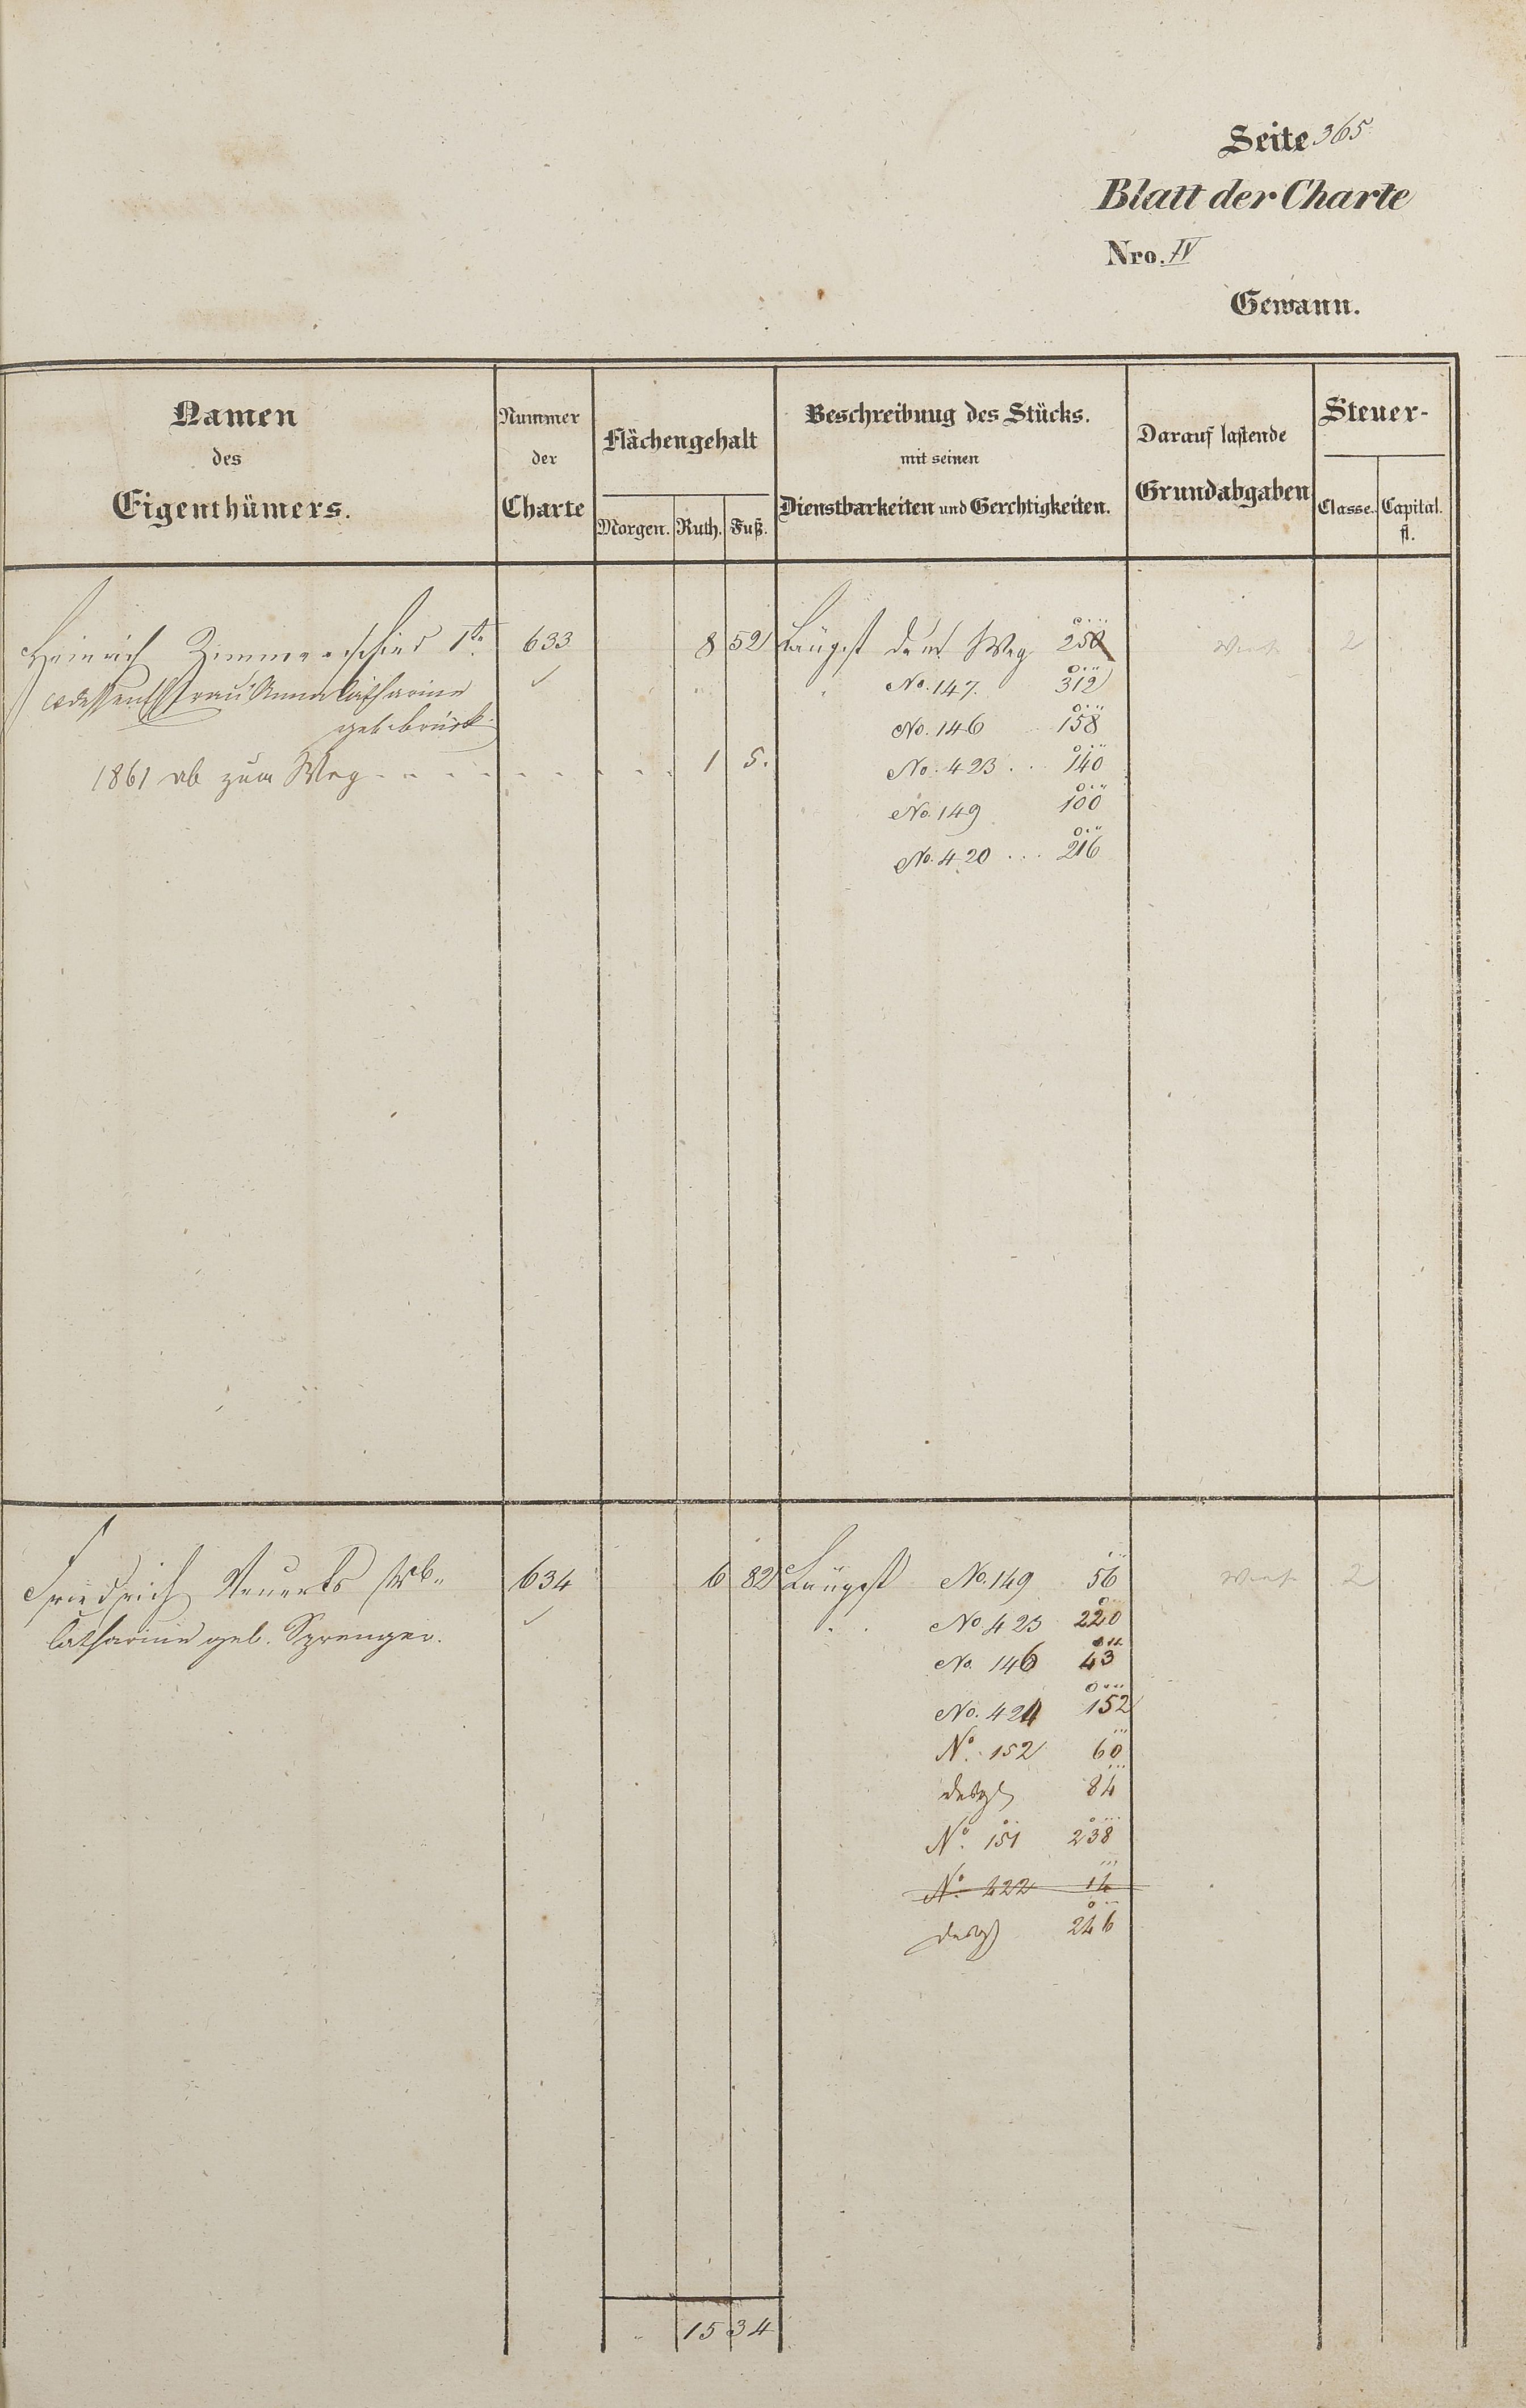 Seite 365
Blatt der Charte
Nro. IV
Gewann.
Namen
des
Eigenthümers.
Nummer
der
Charte
Flächengehalt
Morgen. Ruth. Fuß.
Beschreibung des Stücks.
mit seinen
Dienstbarkeiten und Gerchtigkeiten.
Darauf lastende
Grundabgaben
Steuer-
Classe. Capital.
fl.
Heinrich Zimmerschied 1te 633 8 52 Längst dem Weg 250 Wiese 2
dessen Ehefrau Anna Catharine No. 147. 312
geb. Brück No. 146 158
1861 ab zum Weg 1 5. No. 423 ... 140
No. 149 100
No. 420 ... 216
Friedrich 634 6 82 Längst No. 149 56 Wiese 2
Catharine geb. Sprenger. No 423 220
No. 146 43
No. 424 152
No. 152 60
desgl 84
No. 151 238
No. 422 14
desgl 246
15 34